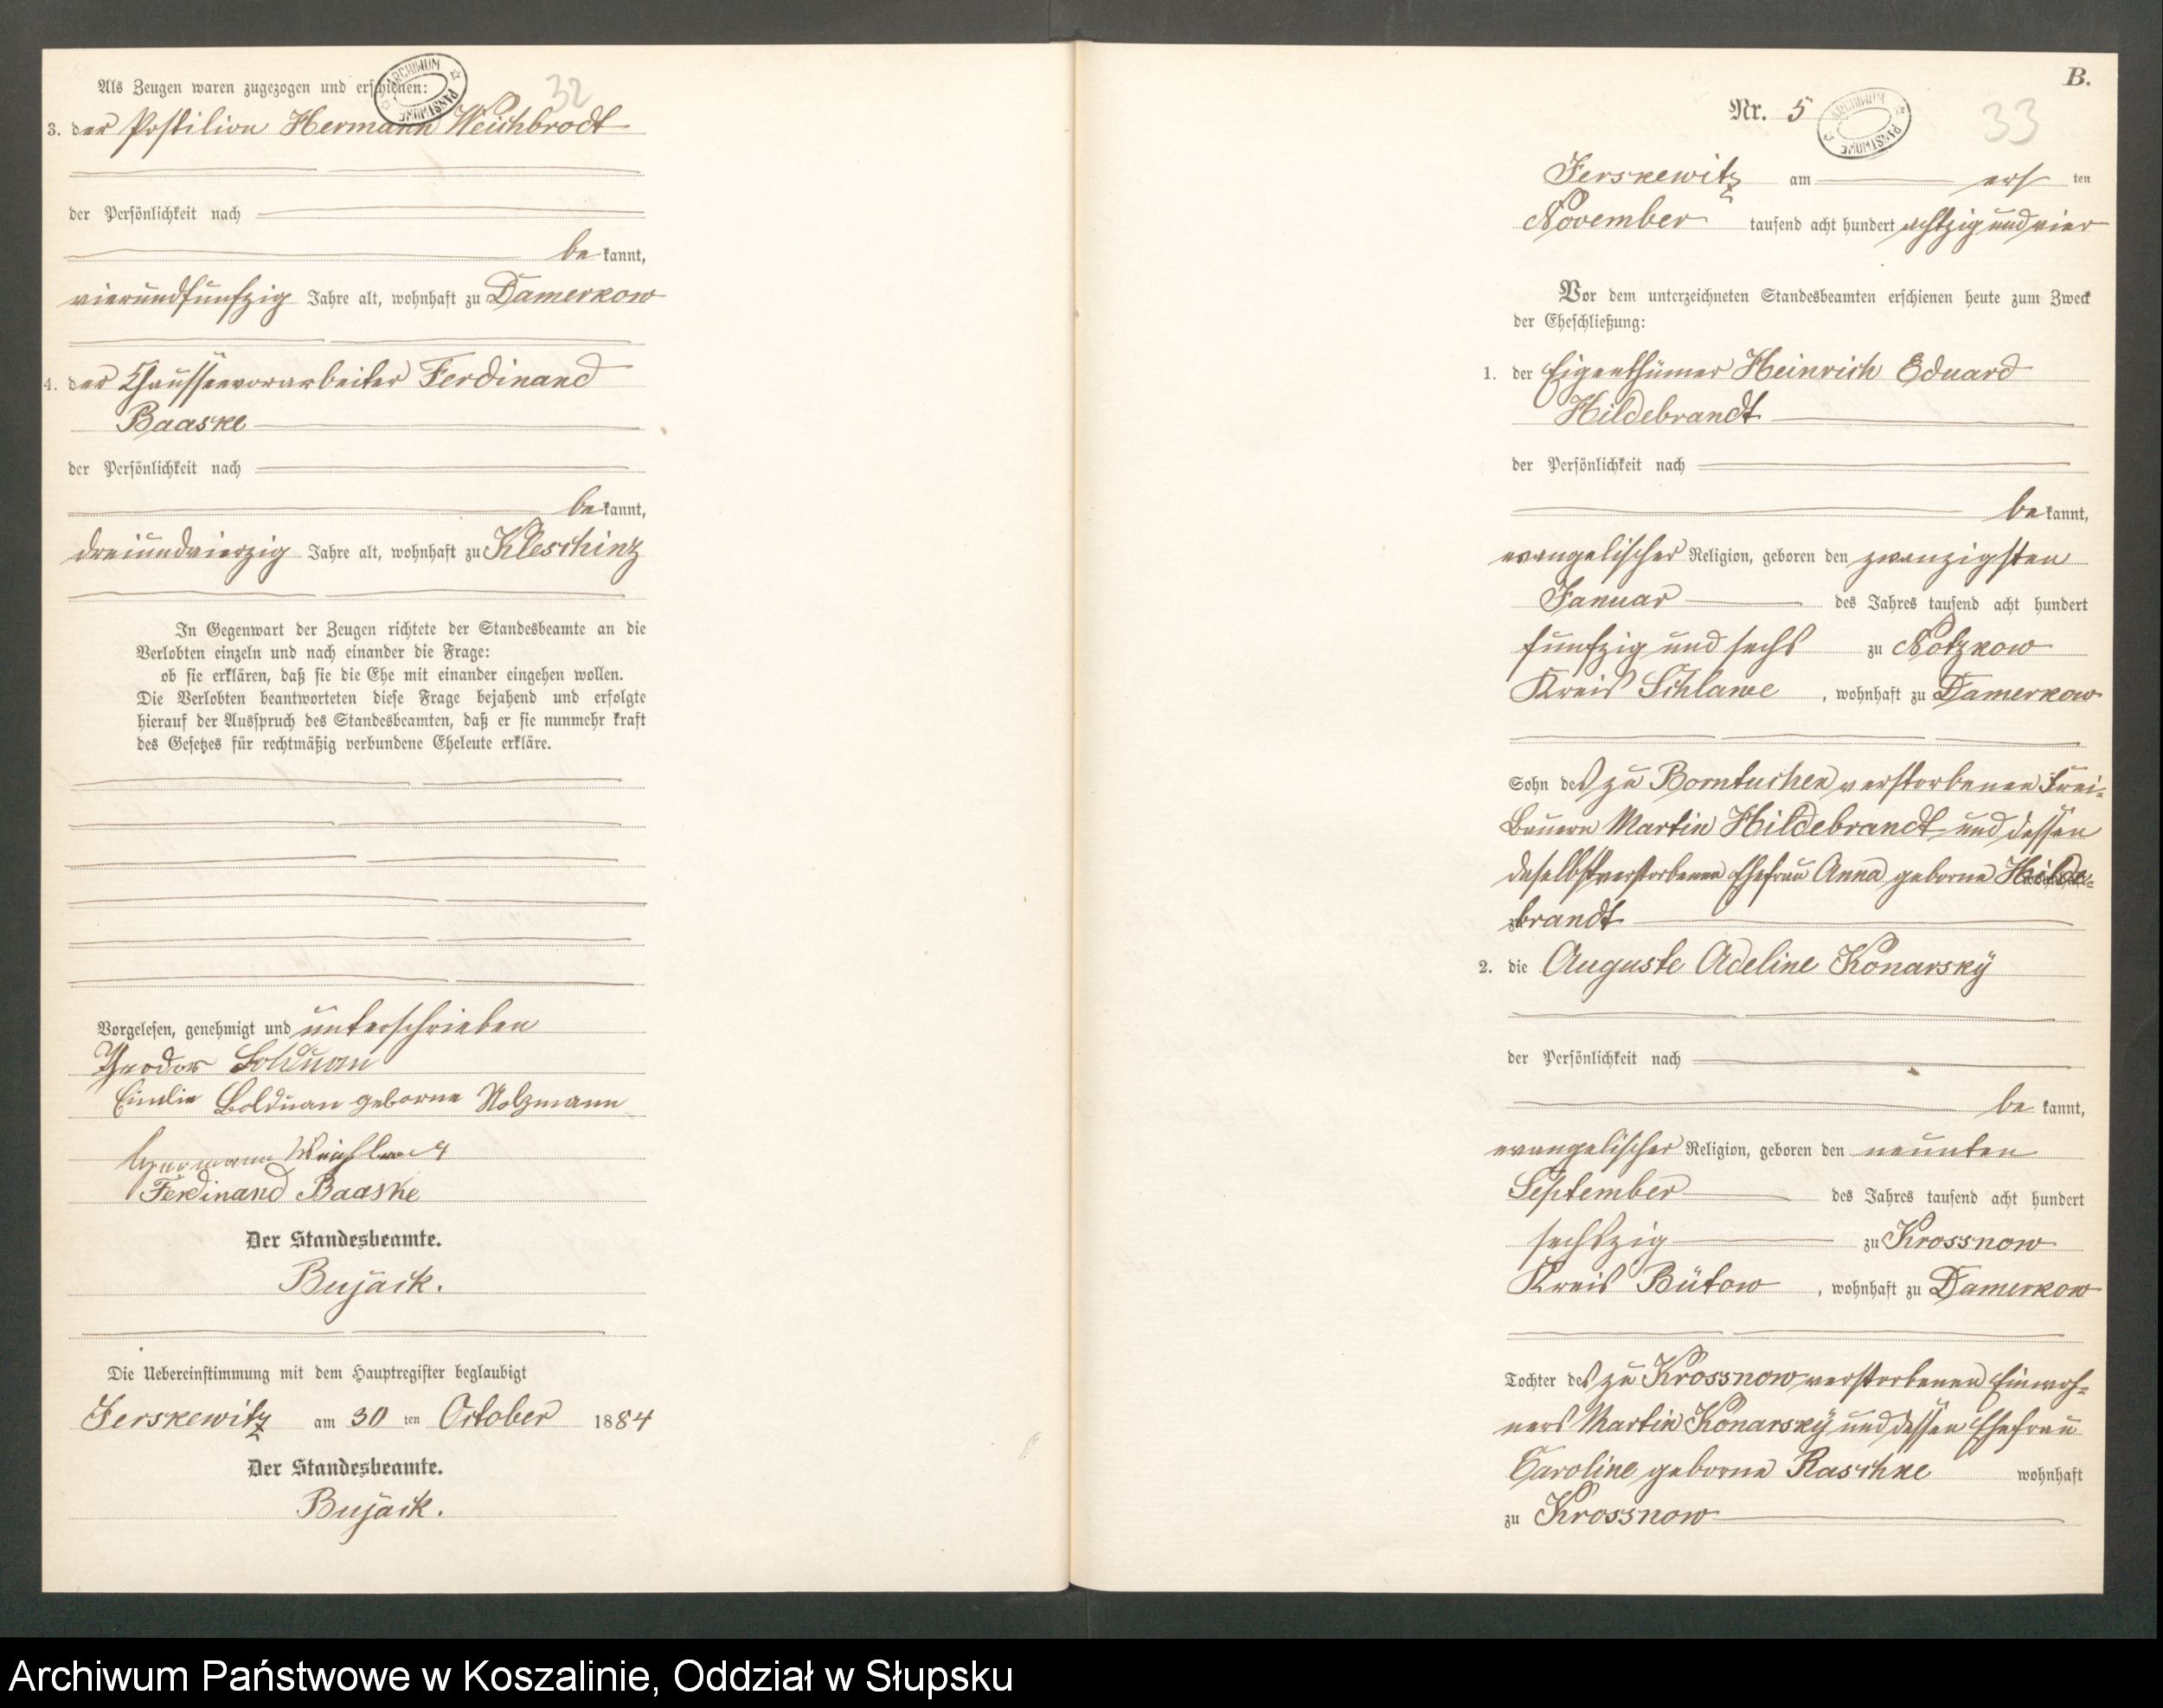 Als Zeugen waren zugezogen und erschienen:
32
3. der Postilion Hermann Weichbrodt
der Persönlichkeit nach
be kannt,
vierundfünfzig Jahre alt, wohnhaft zu Damerkow
4. der Chausseevorarbeiter Ferdinand
Baaske
der Persönlichkeit nach
be kannt,
dreiundvierzig Jahre alt, wohnhaft zu Kleschinz
In Gegenwart der Zeugen richtete der Standesbeamte an die
Verlobten einzeln und nach einander die Frage:
ob sie erklären, daß sie die Ehe mit einander eingehen wollen.
Die Verlobten beantworteten diese Frage bejahend und erfolgte
hierauf der Ausspruch des Standesbeamten, daß er sie nunmehr kraft
des Gesetzes für rechtmäßig verbundene Eheleute erkläre.
Vorgelesen, genehmigt und unterschrieben
Theodor Bolduan
Emilie Bolduan geborne Nolzmann
Hermann Weichbrodt
Ferdinand Baaske
Der Standesbeamte.
Bujack.
Die Uebereinstimmung mit dem Hauptregister beglaubigt
Jerskewitz am 30 ten October 1884
Der Standesbeamte.
Bujack.
ARCHIWUM PAŃSTWOWE
B.
Nr. 5
33
ARCHIWUM PAŃSTWOWE
Jerskewitz am ers ten
November tausend acht hundert achtzig und vier
Vor dem unterzeichneten Standesbeamten erschienen heute zum Zweck
der Eheschließung:
1. der Eigenthümer Heinrich Eduard
Hildebrandt
der Persönlichkeit nach
be kannt,
evangelischer Religion, geboren den zwanzigsten
Januar des Jahres tausend acht hundert
fünfzig und sechs zu Notzkow
Kreis Schlawe, wohnhaft zu Damerkow
Sohn des zu Borntuchen verstorbenen Frei-
bauern Martin Hildebrandt und dessen
daselbst verstorbenen Ehefrau Anna geborne Hilde-
brandt
2. die Auguste Adeline Konarsky
der Persönlichkeit nach
be kannt,
evangelischer Religion, geboren den neunten
September des Jahres tausend acht hundert
sechszig zu Krossnow
Kreis Bütow, wohnhaft zu Damerkow
Tochter des zu Krossnow verstorbenen Einwoh-
ners Martin Konarsky und dessen Ehefrau
Caroline geborne Raschke wohnhaft
zu Krossnow
Archiwum Państwowe w Koszalinie, Oddział w Słupsku